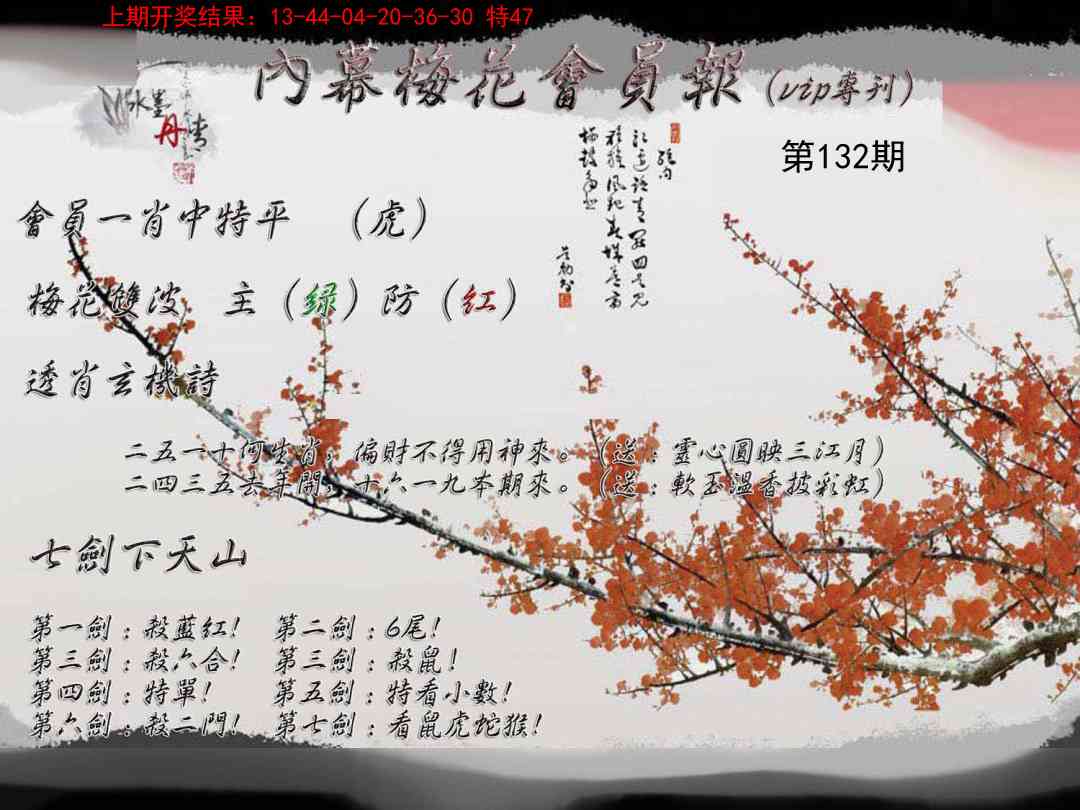 上期开奖结果：13-44-04-20-36-30 特47
內幕梅花會員報（vip專刊）
水墨
丹青
第132期
會員一肖中特平　（虎）
梅花雙波　主（绿）防（红）
透肖玄機詩
二五一十何生肖，偏財不得用神來。（送：靈心圓映三江月）
二四三五去年開，十六一九本期來。（送：軟玉溫香披彩虹）
七劍下天山
第一劍：殺藍紅！　第二劍：6尾！
第三劍：殺六合！　第三劍：殺鼠！
第四劍：特單！　第五劍：特看小數！
第六劍：殺二門！　第七劍：看鼠虎蛇猴！